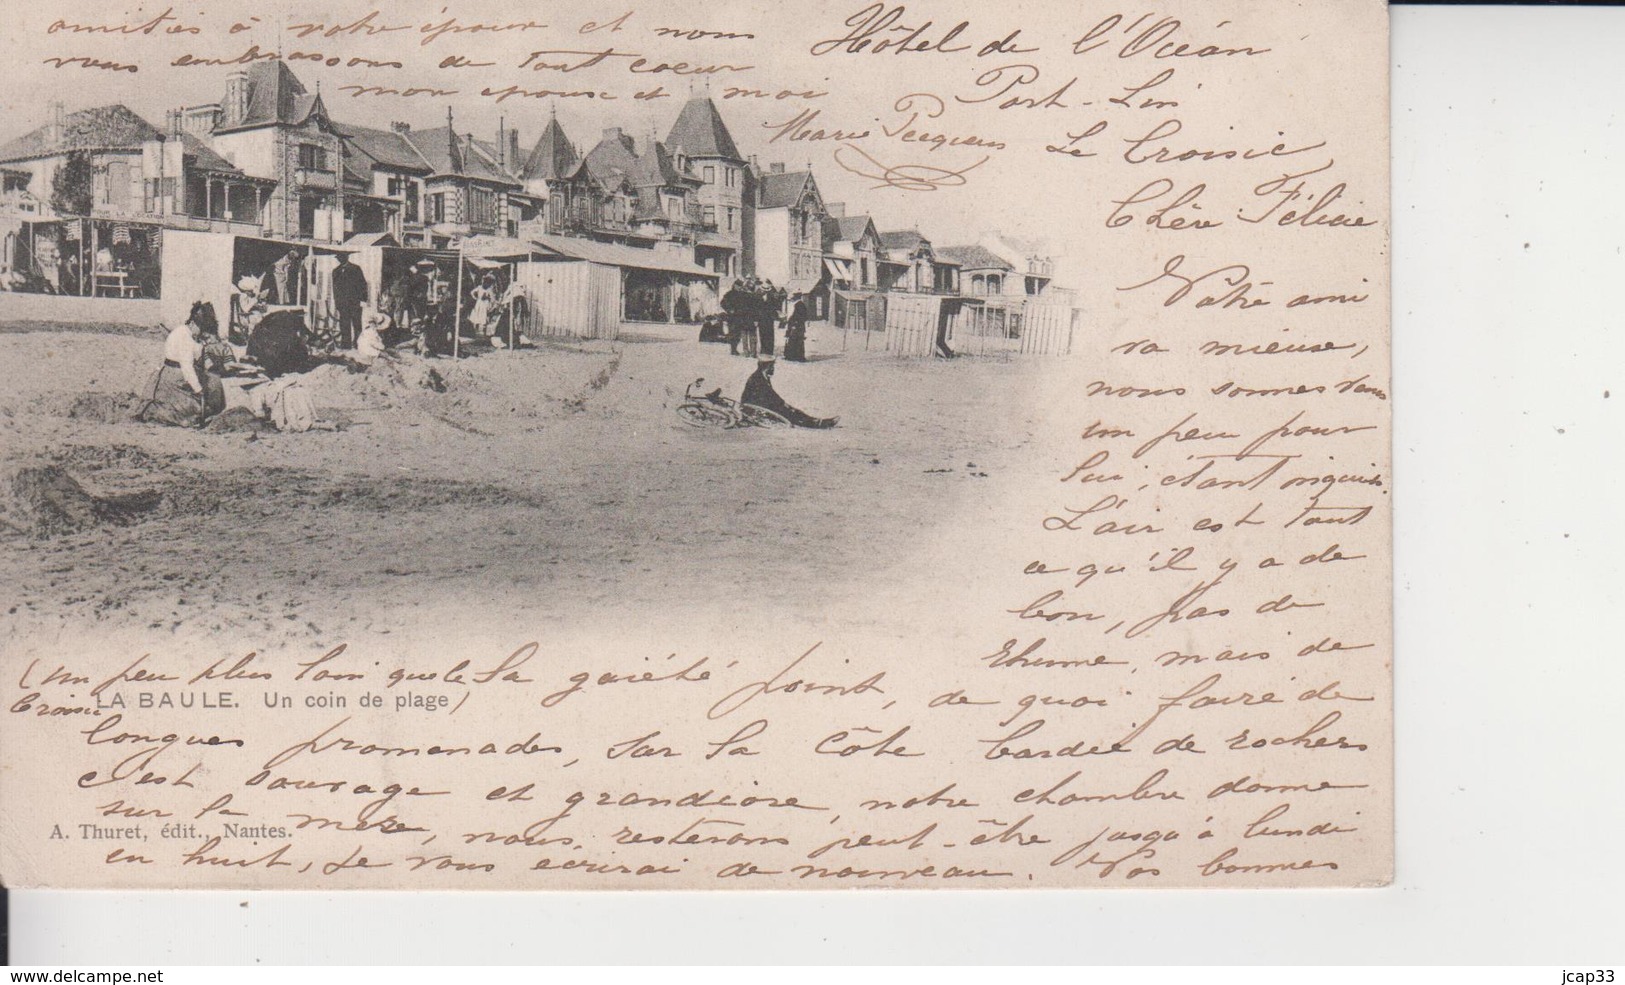 Hôtel de l'Océan
Port-Lin
Le Croisic
Chère Félicie
Votre ami
va mieux,
nous sommes venus
un peu pour
lui, étant
L'air est tout
ce qu'il y a de
bon, pas de
rhume, mais de
la gaieté point, de quoi faire de
longues promenades, sur la côte bordée de rochers
c'est sauvage et grandiose, notre chambre donne
sur la mere, nous resterons peut-être jusqu'à lundi
en huit, Je vous écrirai de nouveau. Nos bonnes
amitiés à votre époux et nous
vous embrassons de tout coeur
mon epouse et moi
Marie
(un peu plus loin que le
Croisic
LA BAULE. Un coin de plage)
A. Thuret, édit., Nantes.
www.delcampe.net
jcap33